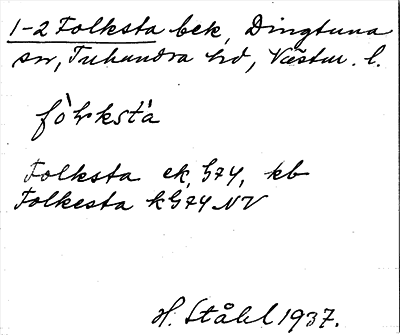 1-2 Folksta bek, Dingtuna
sn, Tuhundra hd, Västm. l.
fò̀lkstá
Folksta ek, G74, kb
Folkesta kG74 NV
H. Ståhl 1937.